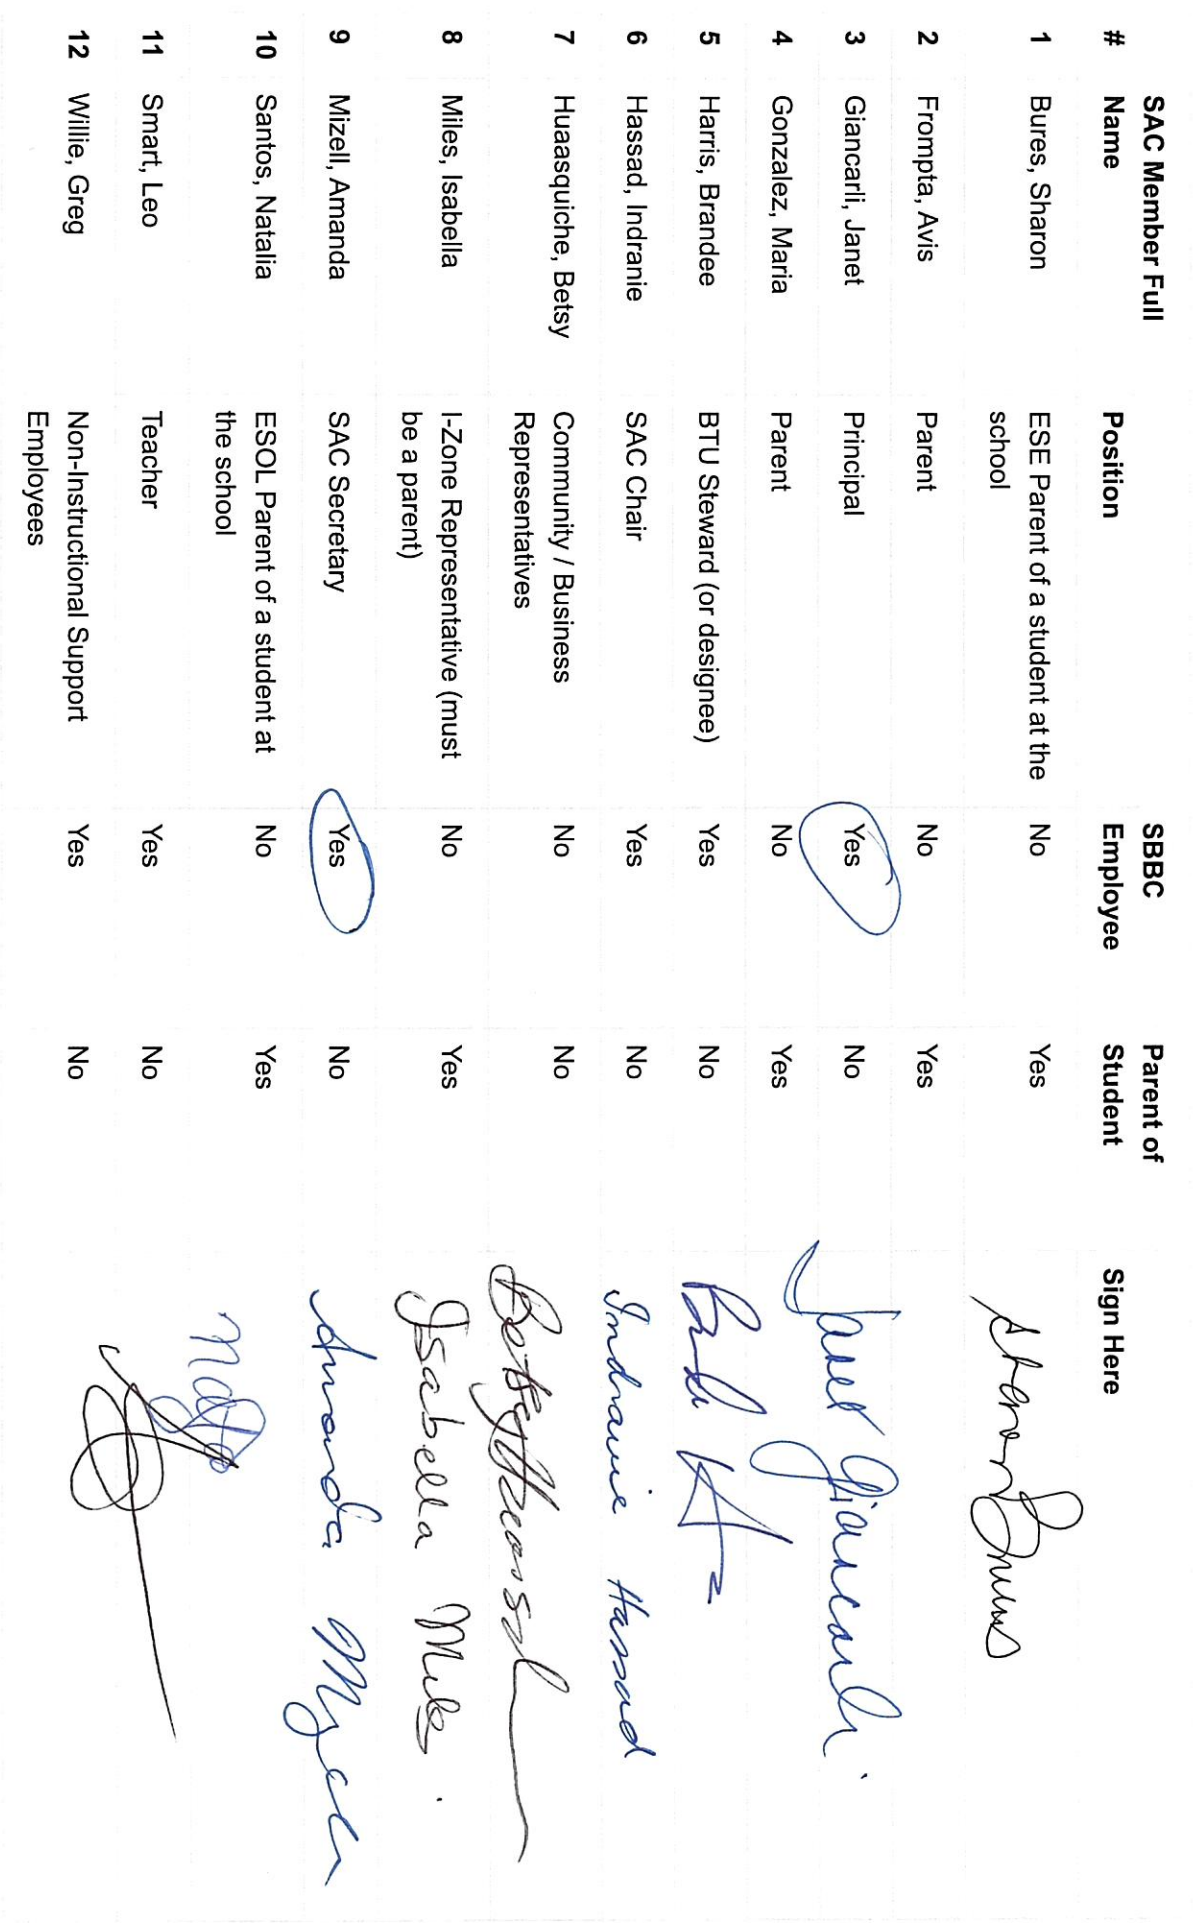 SAC Member Full Name Position SBBC Employee Parent of Student Sign Here
# 
1 Bures, Sharon ESE Parent of a student at the school No Yes Sharon Bures
2 Frompta, Avis Parent No Yes
3 Giancarli, Janet Principal Yes No Janet Giancarli
4 Gonzalez, Maria Parent No Yes
5 Harris, Brandee BTU Steward (or designee) Yes No
6 Hassad, Indranie SAC Chair Yes No Indranie Hassad
7 Huaasquiche, Betsy Community / Business Representatives No No Betsy
8 Miles, Isabella I-Zone Representative (must be a parent) No Yes Isabella Miles
9 Mizell, Amanda SAC Secretary Yes No Amanda
10 Santos, Natalia ESOL Parent of a student at the school No Yes
11 Smart, Leo Teacher Yes No
12 Willie, Greg Non-Instructional Support Employees Yes No